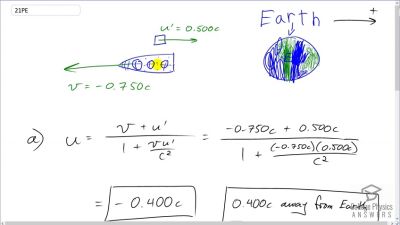 21PE
u' = 0.500c
Earth
+
v = -0.750c
a) u = (v + u') / (1 + vu'/c²) = (-0.750c + 0.500c) / (1 + (-0.750c)(0.500c)/c²)
= -0.400c
0.400c away from Earth
Physics
ANSWERS